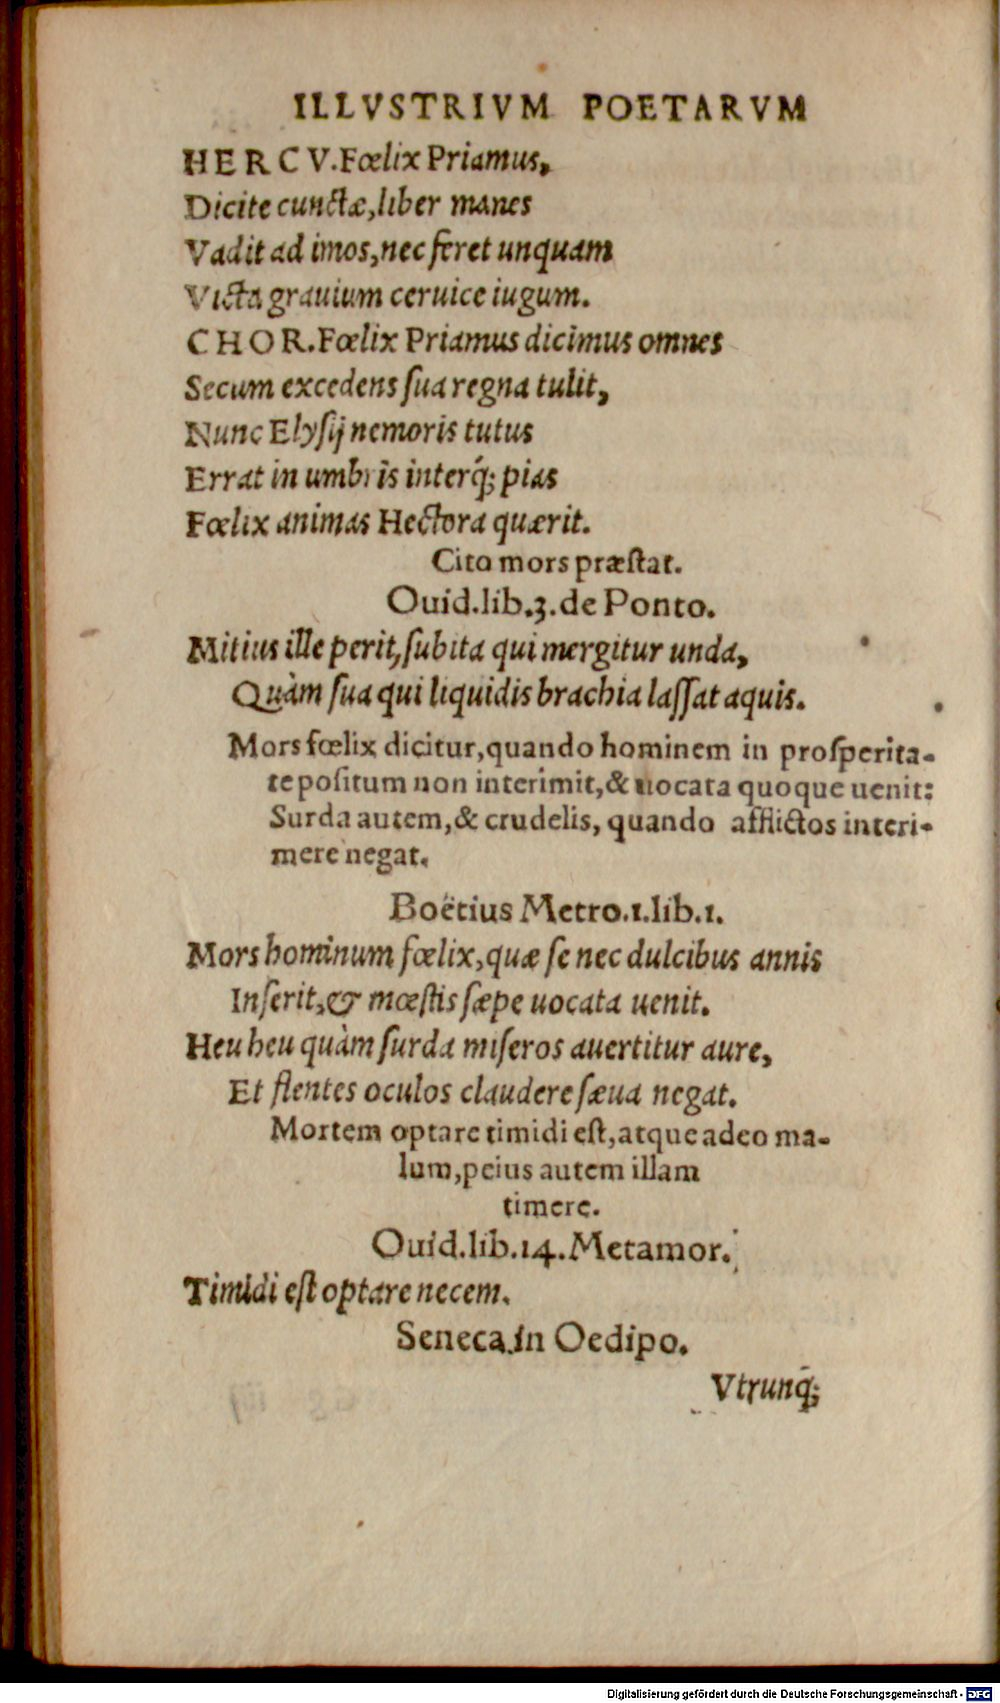 ILLVSTRIVM POETARVM
HERCV. Fœlix Priamus,
Dicite cunctæ, liber manes
Vadit ad imos, nec feret unquam
Victa grauium ceruice iugum.
CHOR. Fœlix Priamus dicimus omnes
Secum excedens ſua regna tulit,
Nunc Elyſij nemoris tutus
Errat in umbris interq́; pias
Fœlix animas Hectora quærit.
Cito mors præſtat.
Ouid. lib. 3. de Ponto.
Mitius ille perit, ſubita qui mergitur unda,
Quàm ſua qui liquidis brachia laſſat aquis.
Mors fœlix dicitur, quando hominem in proſperita-
te poſitum non interimit, & uocata quoque uenit:
Surda autem, & crudelis, quando afflictos interi-
mere negat.
Boëtius Metro. 1. lib. 1.
Mors hominum fœlix, quæ ſe nec dulcibus annis
Inſerit, & mœſtis ſæpe uocata uenit.
Heu heu quàm ſurda miſeros auertitur aure,
Et flentes oculos claudere ſæua negat.
Mortem optare timidi eſt, atque adeo ma-
lum, peius autem illam
timere.
Ouid. lib. 14. Metamor.
Timidi eſt optare necem.
Seneca in Oedipo.
Vtrunq́;
Digitalisierung gefördert durch die Deutsche Forschungsgemeinschaft - DFG